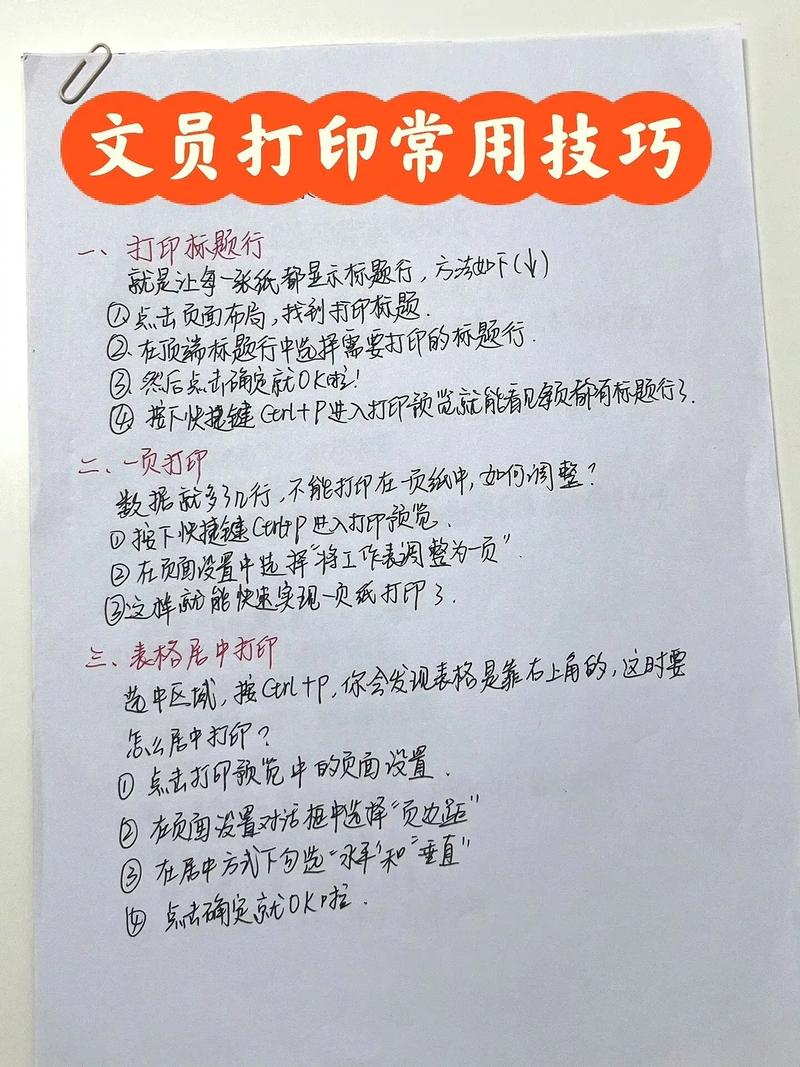 文员打印常用技巧
一、打印标题行
就是让每一张纸都显示标题行，方法如下(↓)
①点击页面布局，找到打印标题.
②在顶端标题行中选择需要打印的标题行.
③然后点击确定就OK啦!
④按下快捷键Ctrl+P进入打印预览就能看见每页都有标题行了.
二、一页打印
数据就多了几行，不能打印在一页纸中，如何调整?
①按下快捷键Ctrl+P进入打印预览.
②在页面设置中选择"将工作表调整为一页".
③这样就能快速实现一页纸打印了.
三、表格居中打印
选中区域，按Ctrl+P，你会发现表格是靠右上角的，这时要
怎么居中打印?
①点击打印预览中的页面设置.
②在页面设置对话框中选择"页边距"
③在居中方式下勾选"水平"和"垂直"
④点击确定就OK啦.